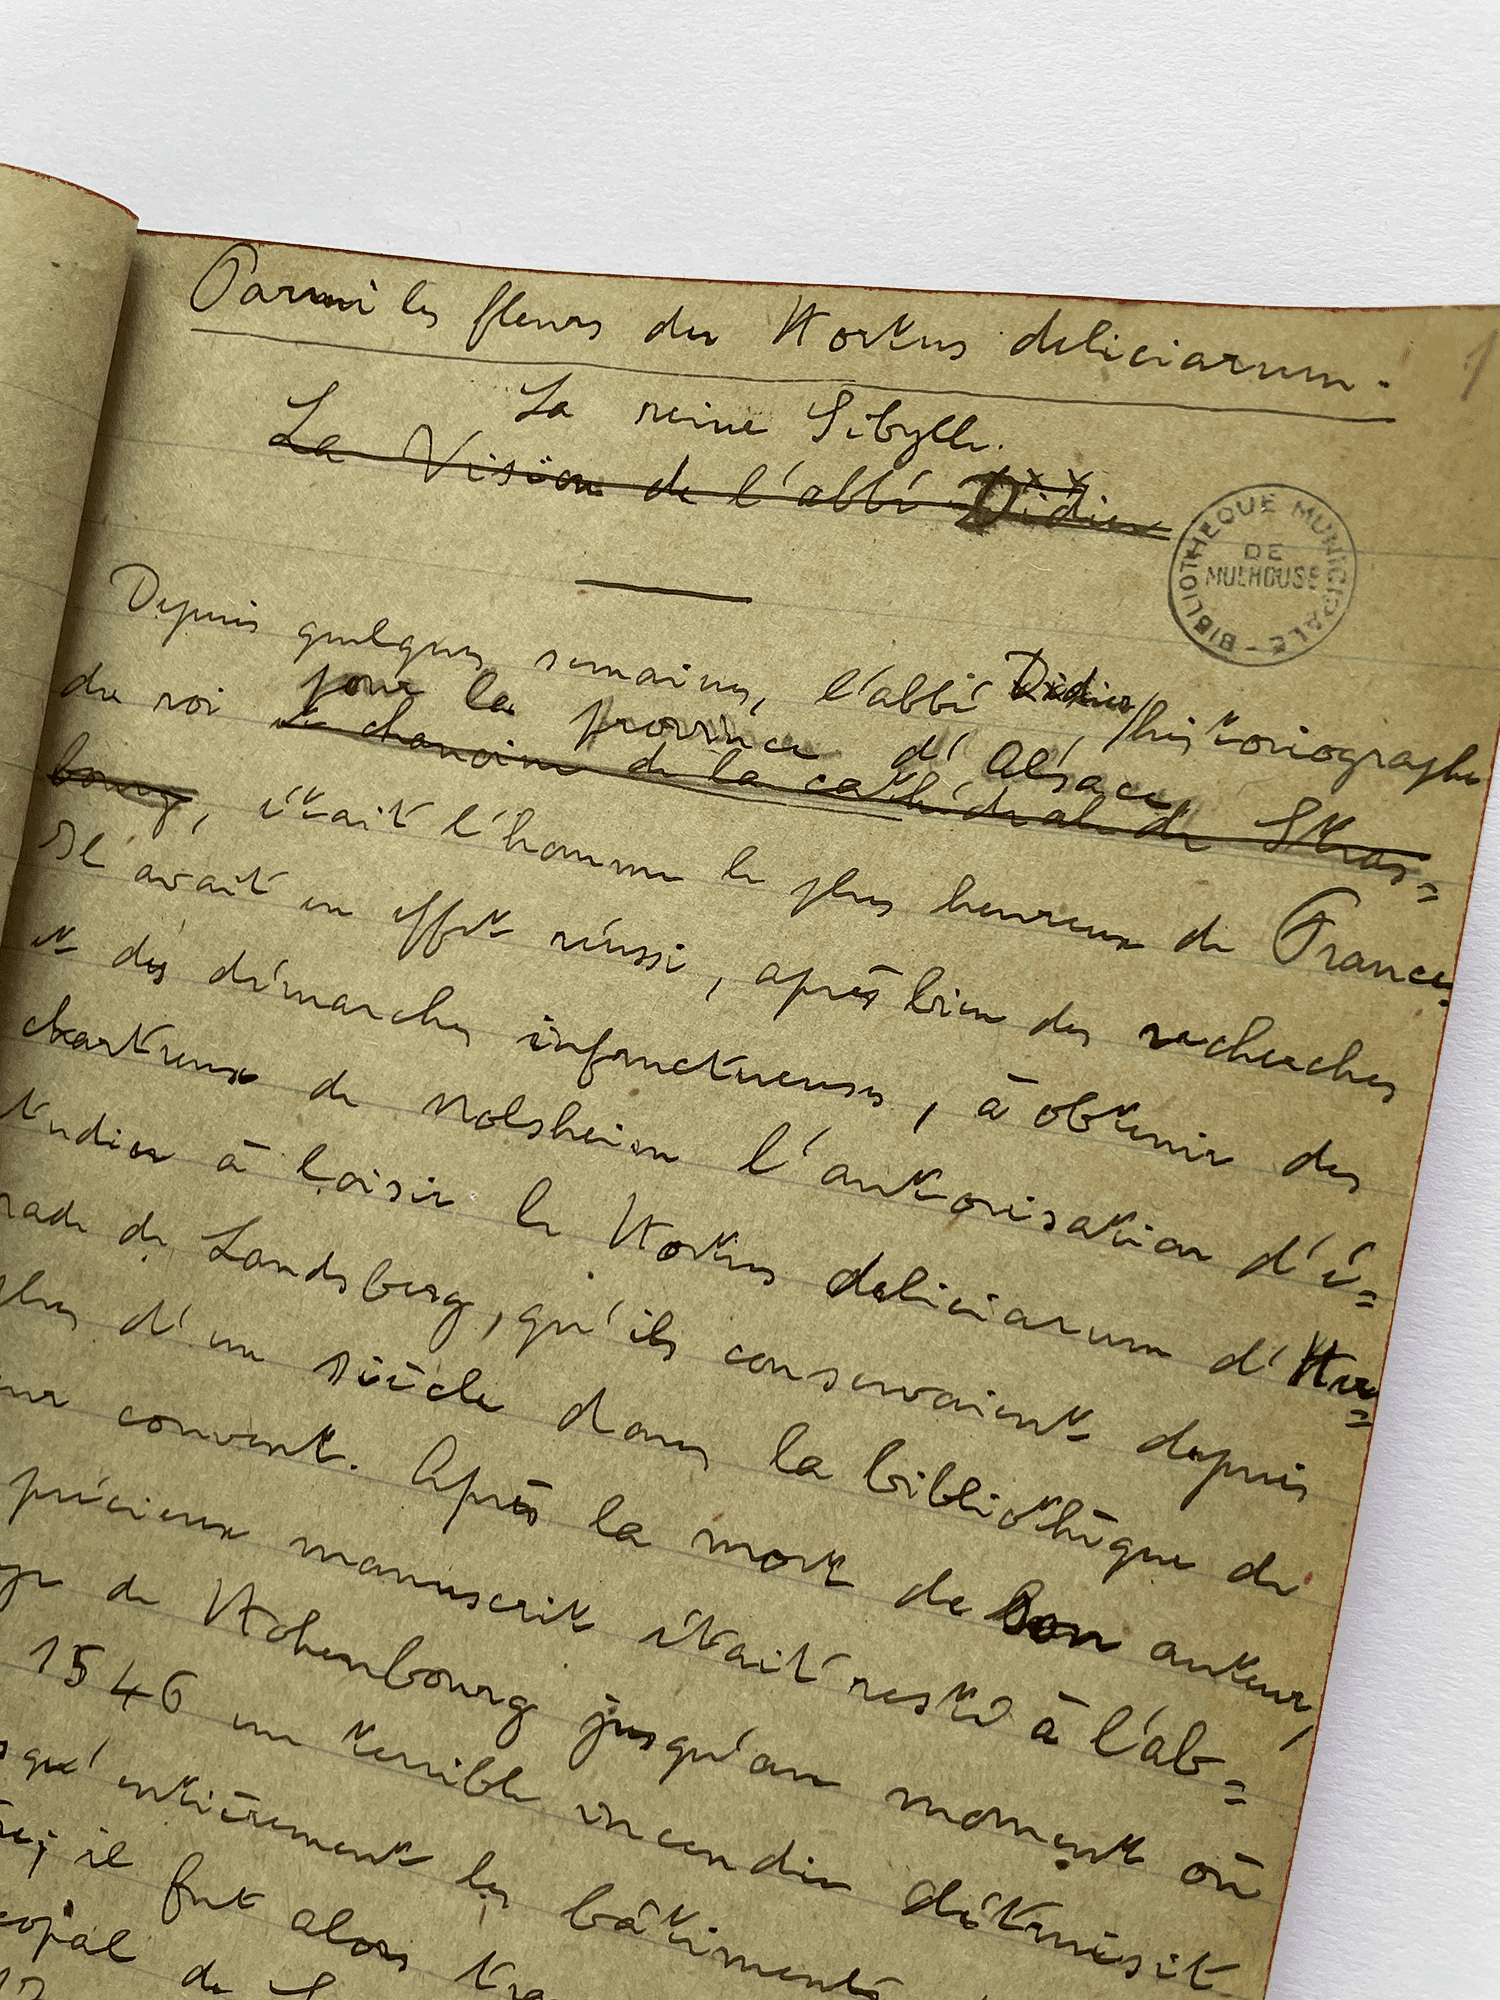 Parmi les fleurs du Hortus deliciarum.
1
La reine Sibylle.
La Vision de l'abbé Didier
BIBLIOTHEQUE MUNICIPALE
DE
MULHOUSE
Depuis quelques semaines, l'abbé Didier, historiographe
du roi pour la province d'Alsace,
et chanoine de la cathédrale de Stras=
bourg, était l'homme le plus heureux de France.
Il avait en effet réussi, après bien des recherches
et des démarches infructueuses, à obtenir des
chartreux de Molsheim l'autorisation d'é=
tudier à loisir le Hortus deliciarum d'Her=
rade de Landsberg, qu'ils conservaient depuis
plus d'un siècle dans la bibliothèque de
leur couvent. Après la mort de son auteur,
précieux manuscrit était resté à l'ab=
baye de Hohenbourg jusqu'au moment où
1546 un terrible incendie détruisit
presqu'entièrement les bâtiments
il fut alors
de